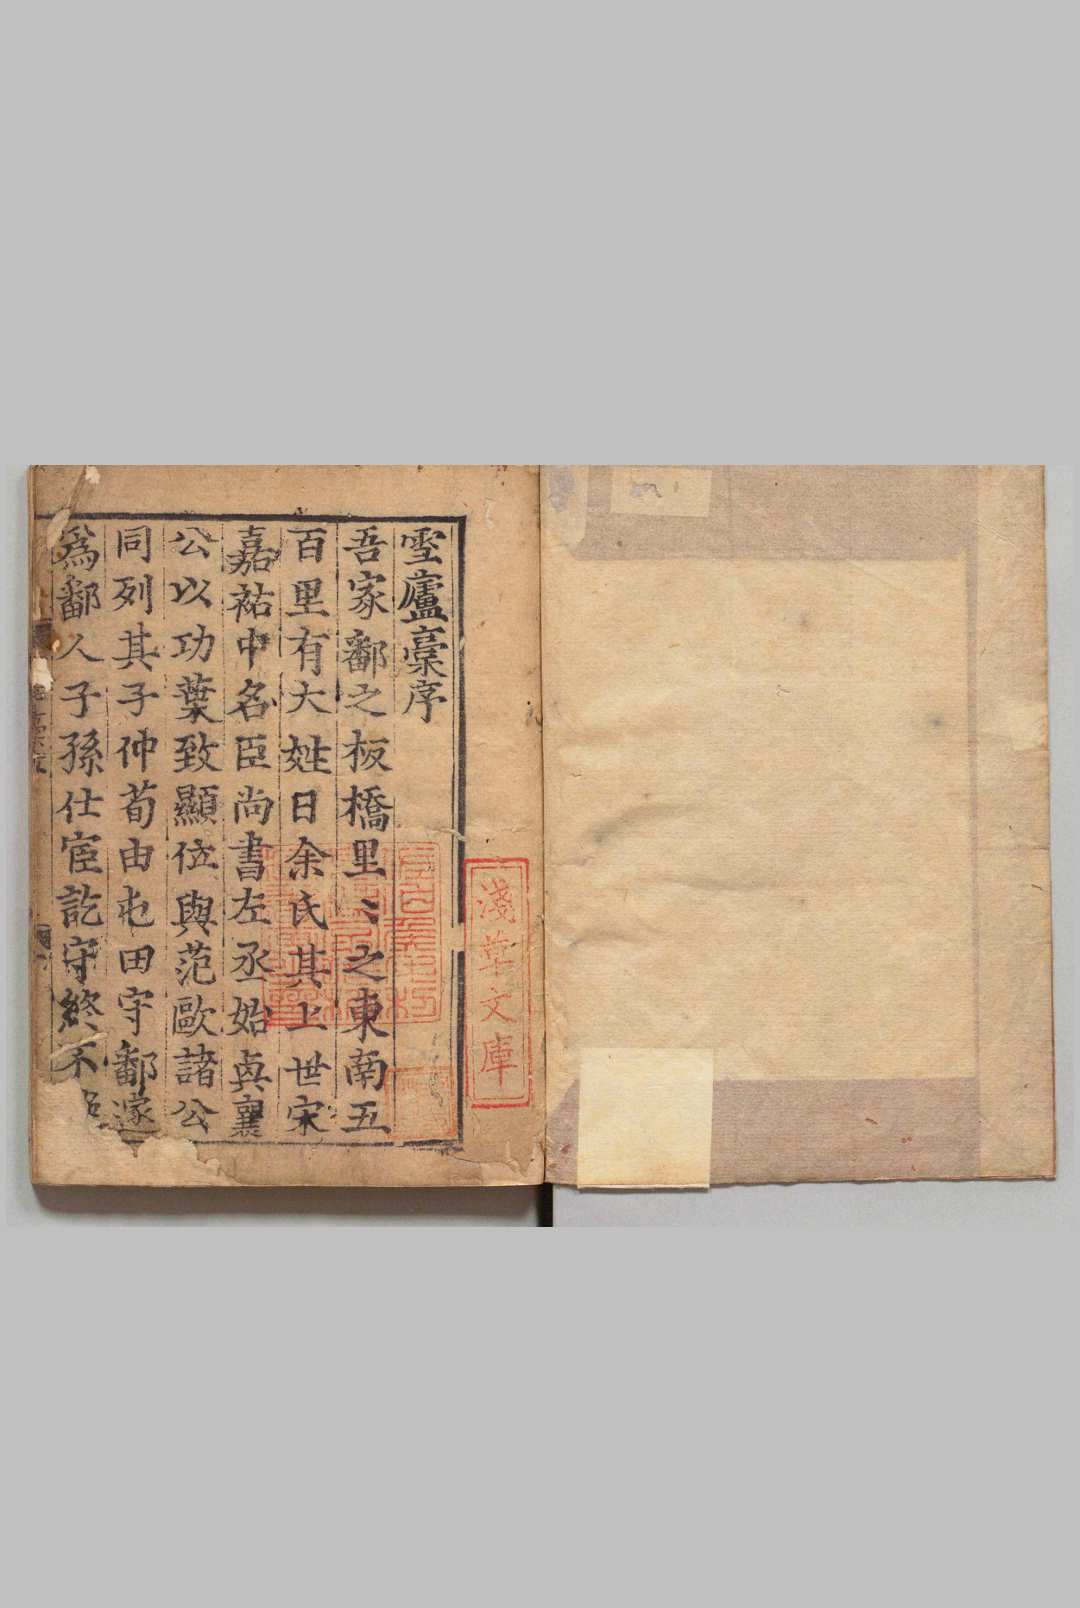 雪廬稾序
吾家鄱之板橋里〻之東南五
百里有大姓曰余氏其上世宋
嘉祐中名臣尚書左丞始眞襄
公以功葉致顯位與范歐諸公
同列其子仲荀由屯田守鄱遂
爲鄱人子孫仕宦訖守終不
淺草文庫